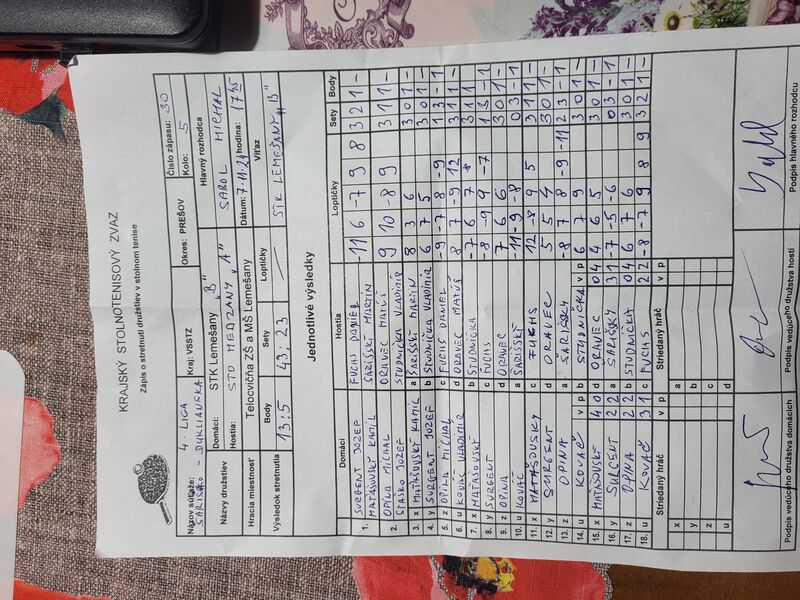 KRAJSKÝ STOLNOTENISOVÝ ZVAZ
Zápis o stretnutí družstiev v stolnom tenise
Názov súťaže: 4. LIGA Kraj: VSSTZ Okres: PREŠOV Číslo zápasu: 30
ŠARIŠSKO - DUKLIANSKA Kolo: 5
Názvy družstiev Domáci: STK Lemešany "B" Hlavný rozhodca
Hostia: STO MEDZANY "A" SABOL MICHAL
Hracia miestnosť Telocvičňa ZŠ a MŠ Lemešany Dátum: 7.11.24 hodina: 17 45
Výsledok stretnutia Body Sety Loptičky Víťaz
13:5 43:23 — STK LEMEŠANY "B"
Jednotlivé výsledky
Domáci Hostia Loptičky Sety Body
1. SURGENT JOZEF FUCHS DANIEL 11 6 -7 9 8 3 2 1 -
MATAŠOVSKÝ KAMIL ŠARIŠSKÝ MARTIN
2. OPINA MICHAL ORAVEC MATÚŠ 9 10 -8 9 3 1 1 -
STAŠKO JOZEF STUDNIČKA VLADIMÍR
3. x MATAŠOVSKÝ KAMIL a ŠARIŠSKÝ MARTIN 8 3 6 3 0 1 -
4. y SURGENT JOZEF b STUDNIČKA VLADIMÍR 6 7 5 3 0 1 -
5. z OPINA MICHAL c FUCHS DANIEL -9 -7 8 -9 1 3 - 1
6. u KOVAČ VLADIMÍR d ORAVEC MATÚŠ 8 7 -9 12 3 1 1 -
7. x MATAŠOVSKÝ b STUDNIČKA -7 6 7 8 3 1 1 -
8. y SURGENT c FUCHS -8 -9 9 -7 1 3 - 1
9. z OPINA d ORAVEC 7 6 6 3 0 1 -
10. u KOVAČ a ŠARIŠSKÝ -11 -9 -8 0 3 - 1
11. x MATAŠOVSKÝ c FUCHS 12 -8 9 5 3 1 1 -
12. y SURGENT d ORAVEC 5 5 4 3 0 1 -
13. z OPINA a ŠARIŠSKÝ -8 7 8 -9 -11 2 3 - 1
14. u KOVAČ v p b STUDNIČKA v p 6 7 9 3 0 1 -
15. x MATAŠOVSKÝ 4 0 d ORAVEC 0 4 4 6 5 3 0 1 -
16. y SURGENT 2 2 a ŠARIŠSKÝ 3 1 -7 -5 -6 0 3 - 1
17. z OPINA 2 2 b STUDNIČKA 0 4 6 7 6 3 0 1 -
18. u KOVAČ 3 1 c FUCHS 2 2 -8 -7 9 8 9 3 2 1 -
Striedaný hráč v p Striedaný hráč v p
x a
y b
z c
u d
Podpis vedúceho družstva domácich Podpis vedúceho družstva hostí Podpis hlavného rozhodcu